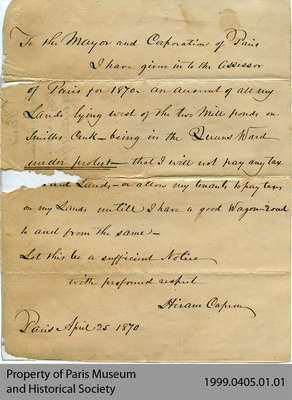 To the Mayor and Corporation of Paris
I have given in to the assessor
of Paris for 1870 an amount of all my
Lands lying west of the two Mill ponds on
Smiths Creek - being in the Queens Ward
under protest - that I will not pay any tax
said Lands - or allow my tenants to pay taxes
on my Lands untill I have a good Wagon-road
to and from the same -
Let this be a sufficient Notice
with profound respect
Hiram Capron
Paris April 25 1870
Property of Paris Museum
and Historical Society
1999.0405.01.01